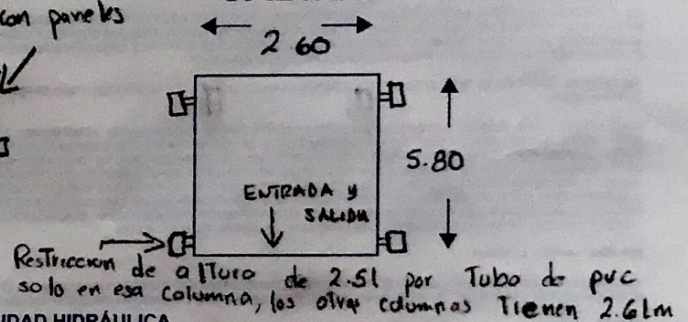 con paneles
2.60
5.80
ENTRADA y
SALIDA
Restriccion de altura de 2.51 por Tubo de pvc
solo en esa columna, las otras columnas Tienen 2.61m
IDAD HIDRÁULICA